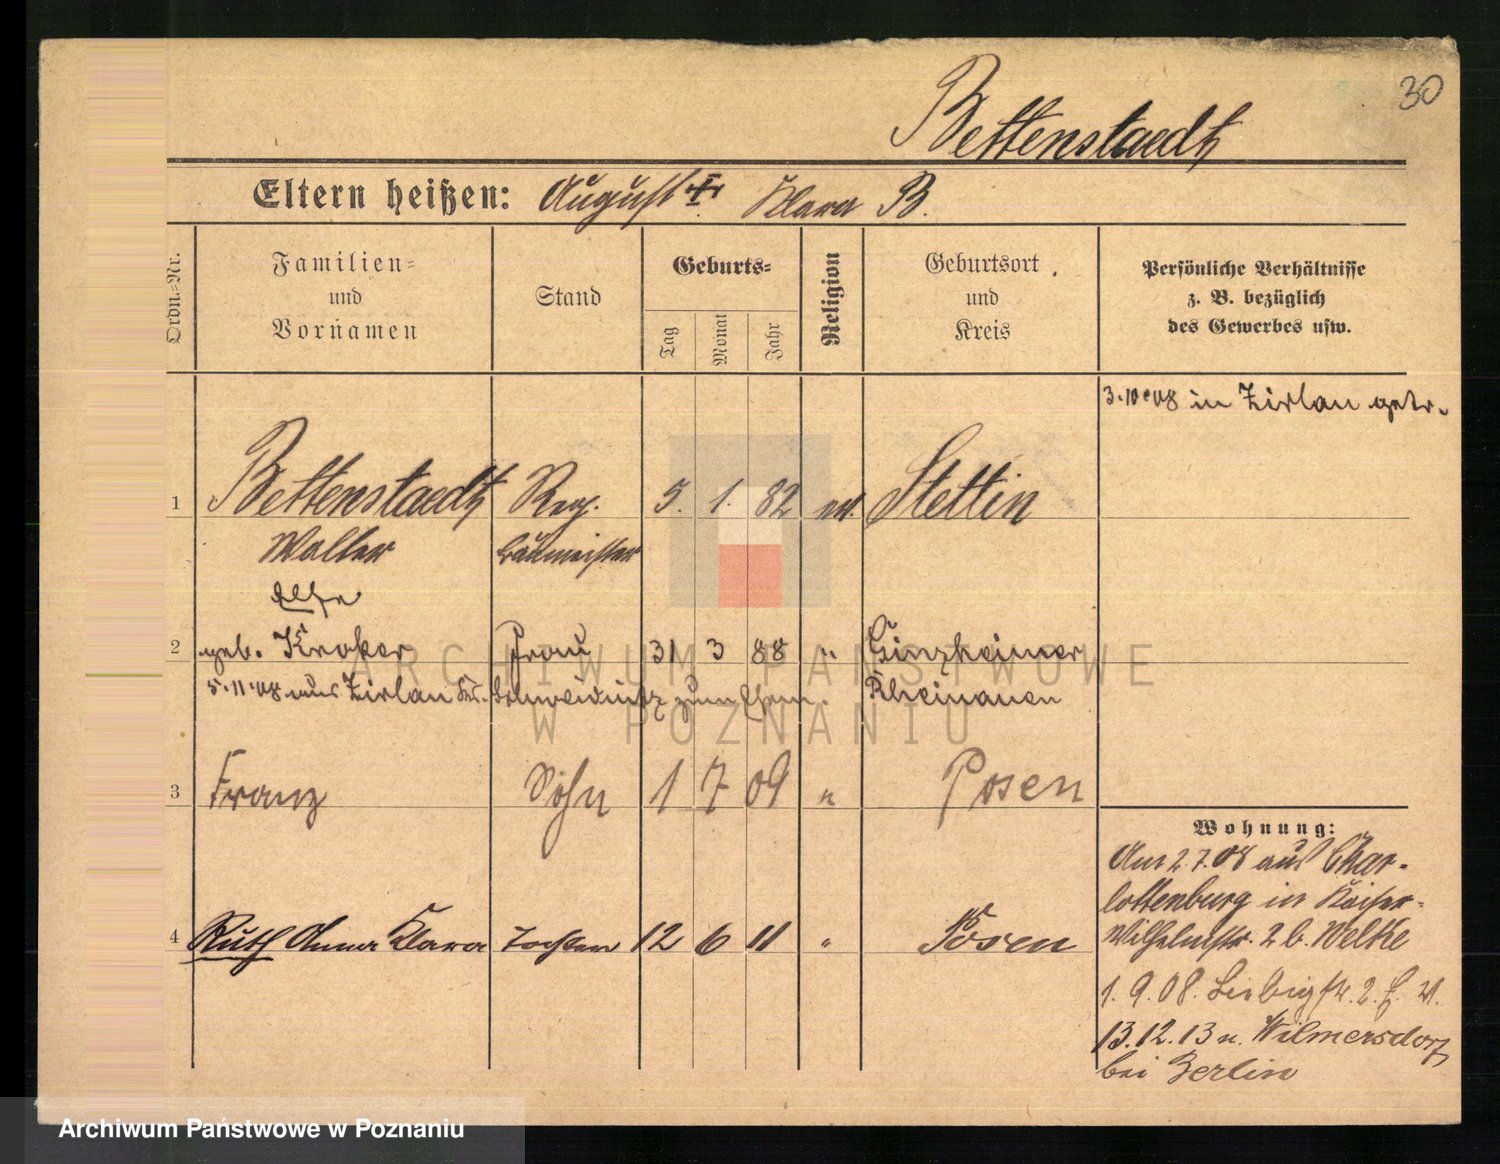 30
Bettenstaedt
Eltern heißen: August † Klara B.
Ordn.-Nr.
Familien-
und
Vornamen
Stand
Geburts-
Tag
Monat
Jahr
Religion
Geburtsort
und
Kreis
Persönliche Verhältnisse
z. B. bezüglich
des Gewerbes usw.
3.10.08 in Zirlau getr.
1 Bettenstaedt Reg. 5. 1. 82 ev. Stettin
Walter Baumeister
Else
2 geb. Kroker Frau 31 3 88 " Rheinauen
5.11.08 aus Zirlau Schweidnitz zum Ehem.
3 Franz Sohn 1 7 09 " Posen
Wohnung:
Am 2.7.08 aus Char-
lottenburg in Kaiser-
Wilhelmstr. 2 b. Welke
4 Ruth Anna Klara Tochter 12 6 11 " Posen
1.9.08. Liebigstr. 2.
13.12.13 n. Wilmersdorf
bei Berlin
ARCHIWUM PAŃSTWOWE
W POZNANIU
Archiwum Państwowe w Poznaniu